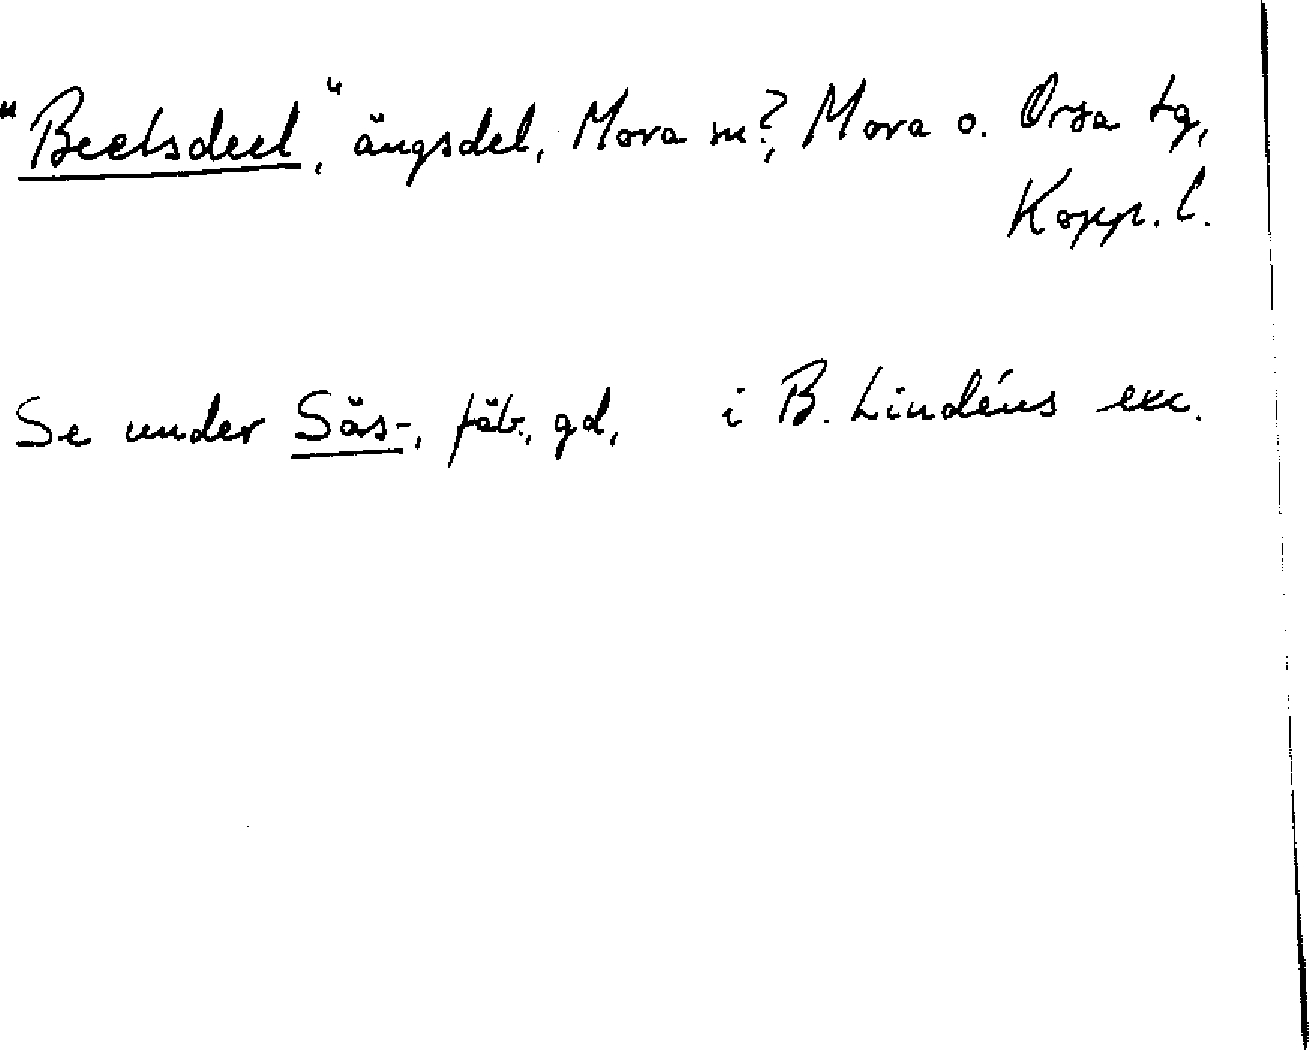 "Beetsdeel," ängsdel, Mora sn?, Mora o. Orsa tg,
Kopp. l.
Se under Säs-, fäb., gd, i B. Lindéns exc.